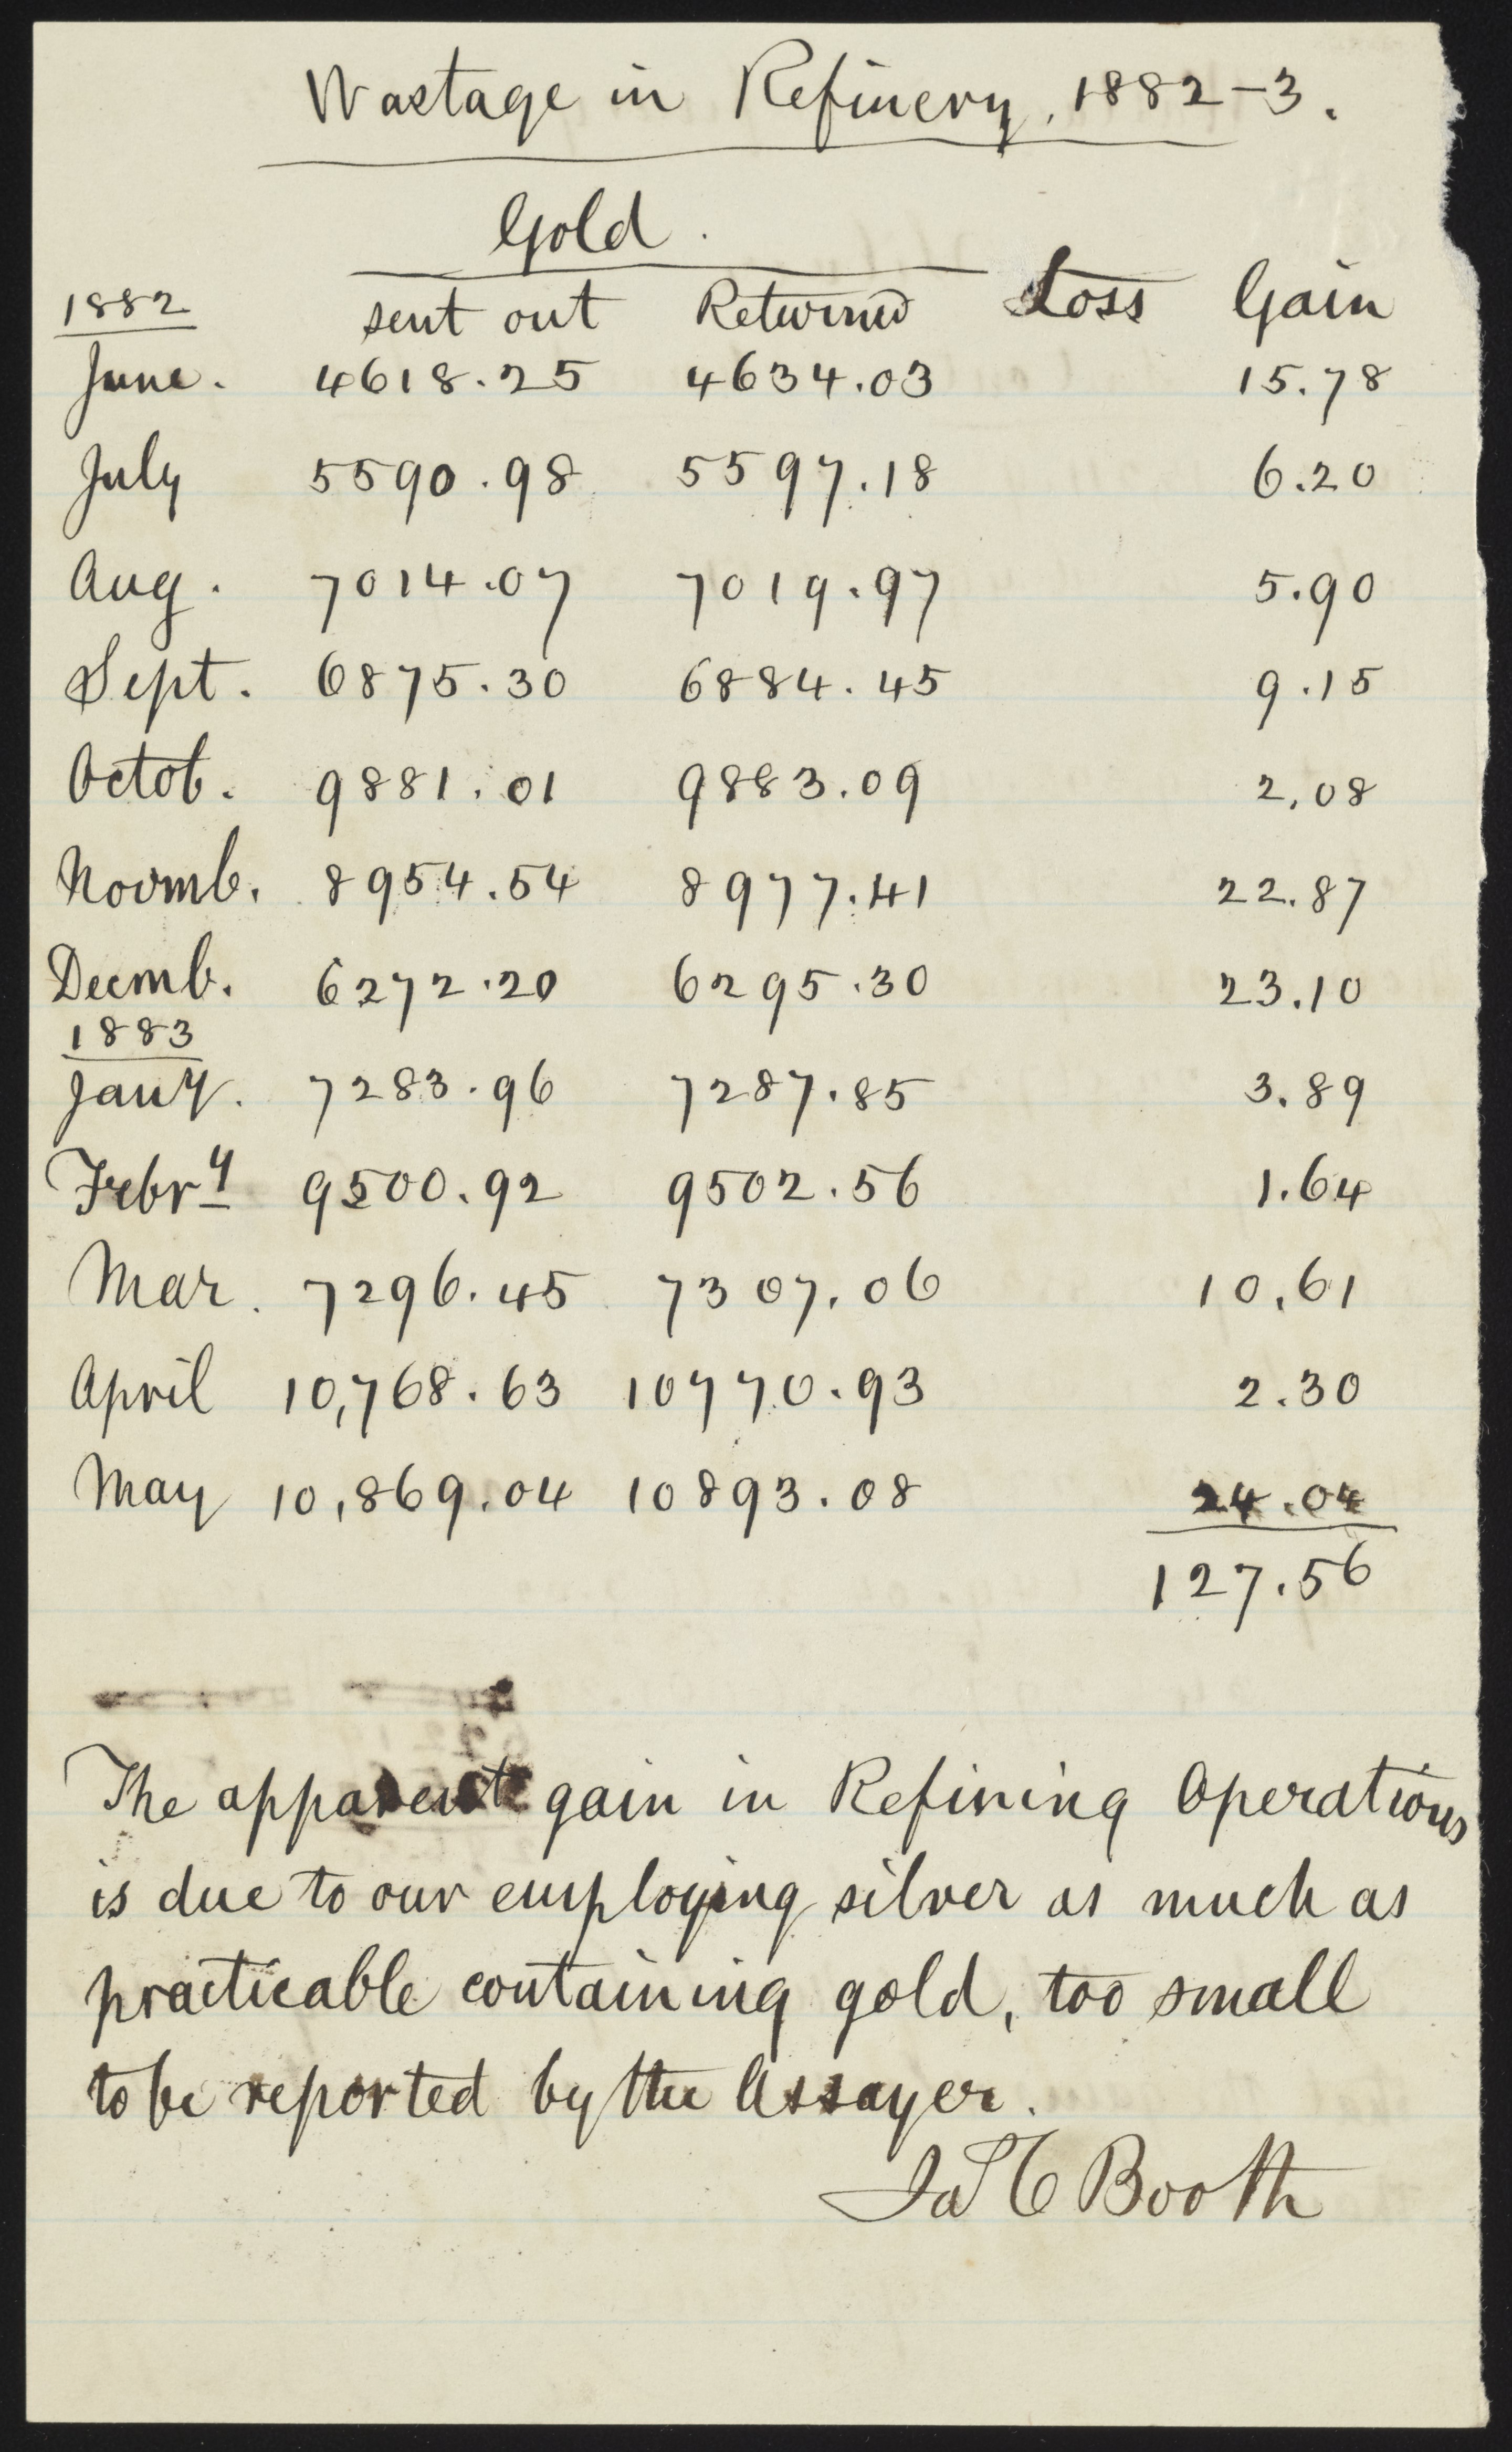 Wastage in Refinery, 1882-3.
Gold.
1882 sent out Returned Loss Gain
June. 4618.25 4634.03 15.78
July 5590.98 5597.18 6.20
Aug. 7014.07 7019.97 5.90
Sept. 6875.30 6884.45 9.15
Octob. 9881.01 9883.09 2,08
Novmb. 8954.54 8977.41 22.87
Decmb. 6272.20 6295.30 23.10
1883
Jany. 7283.96 7287.85 3.89
Febry 9500.92 9502.56 1.64
Mar. 7296.45 7307.06 10,61
April 10,768.63 10770.93 2.30
May 10,869.04 10893.08 24.04
127.56
The apparent gain in Refining Operations
is due to our employing silver as much as
practicable containing gold, too small
to be reported by the Assayer.
Jas C Booth